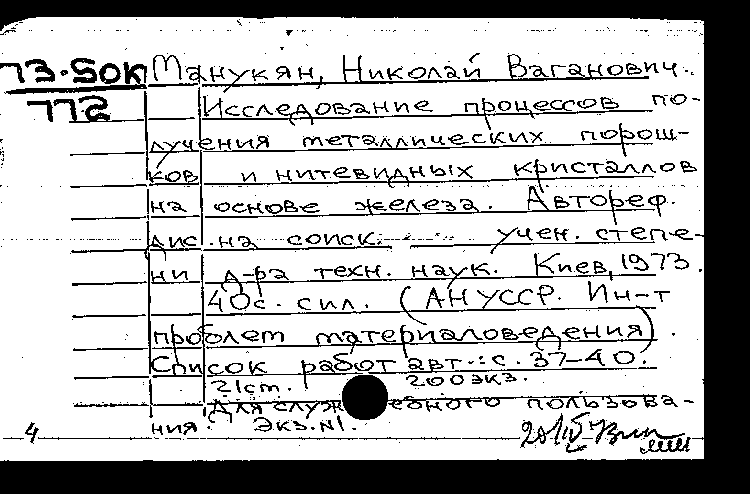 73-50к Манукян, Николай Ваганович.
772 Исследование процессов по-
лучения металлических порош-
ков и нитевидных кристаллов
на основе железа. Автореф.
дис. на соиск. учен. степе-
ни д-ра техн. наук. Киев, 1973.
40с. с ил. (АН УССР. Ин-т
проблем материаловедения).
Список работ авт.: с. 37-40.
21 ст. 200 экз.
Для служебного пользова-
ния. Экз. N1.
4